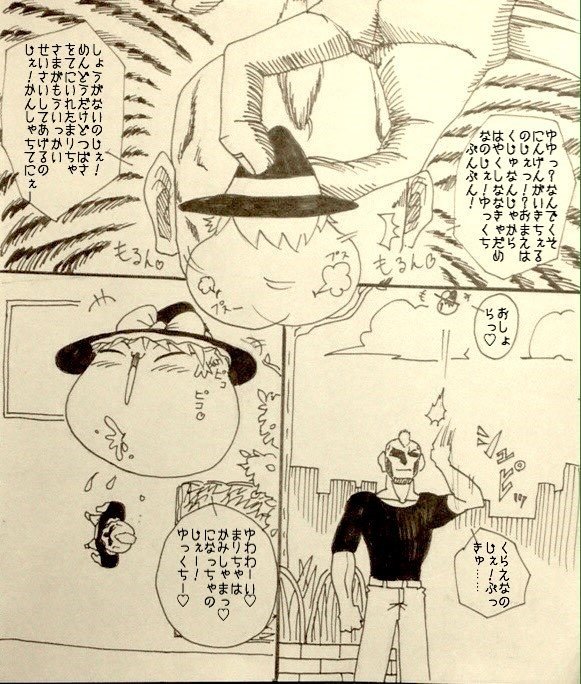 ゆゆっ?なんでくそ
にんげんがいきちぇる
のじぇっ!?おまえは
くじゅなんじゃから
はやくしななきゃだめ
なのじぇ!ゆっくち
ぷんぷん!
しょうがないのじぇ!
めんどうだけどつばさ
をてにいれたまりちゃ
さまがもういっかい
せいさいしてあげるの
じぇ!かんしゃちてにぇー
もるん♡
もるん♡
プスー
プスー
おしょ
らっ♡
キュピッ
くらえなの
じぇ!ぷっ
きゅ……
ピコ
ピコ♡
ゆわわーい♡
まりちゃは
かみしゃまっ♡
になっちゃの
じぇー!
ゆっくちー♡